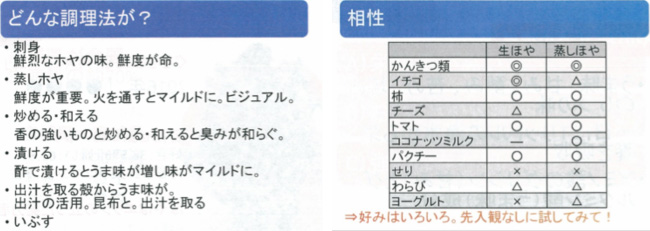 どんな調理法が？
・刺身
鮮烈なホヤの味。鮮度が命。
・蒸しホヤ
鮮度が重要。火を通すとマイルドに。ビジュアル。
・炒める・和える
香の強いものと炒める・和えると臭みが和らぐ。
・漬ける
酢で漬けるとうま味が増し味がマイルドに。
・出汁を取る殻からうま味が。
出汁の活用。昆布と。出汁を取る
・いぶす
相性
生ほや 蒸しほや
かんきつ類 ◎ ◎
イチゴ ◎ △
柿 〇 〇
チーズ △ 〇
トマト 〇 〇
ココナッツミルク ― 〇
パクチー 〇 〇
せり × ×
わらび △ △
ヨーグルト × △
⇒好みはいろいろ。先入観なしに試してみて！